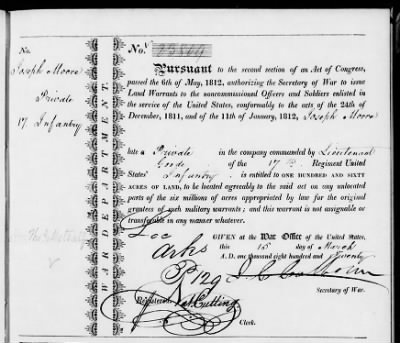 No.
Joseph Moore
Private
17. Infantry
WAR DEPARTMENT.
No.
Pursuant to the second section of an Act of Congress,
passed the 6th of May, 1812, authorizing the Secretary of War to issue
Land Warrants to the noncommissioned Officers and Soldiers enlisted in
the service of the United States, conformably to the acts of the 24th of
December, 1811, and of the 11th of January, 1812, Joseph Moore
late a Private in the company commanded by Lieutenant
of the 17th Regiment United
States' Infantry is entitled to ONE HUNDRED AND SIXTY
ACRES OF LAND, to be located agreeably to the said act on any unlocated
parts of the six millions of acres appropriated by law for the original
grantees of such military warrants; and this warrant is not assignable or
transferable in any manner whatever.
Loc GIVEN at the War Office of the United States,
Arks this 15 day of March
A.D. one thousand eight hundred and twenty
P 129 J. C. Calhoun
Secretary of War.
Registered Nat Cutting
Clerk.